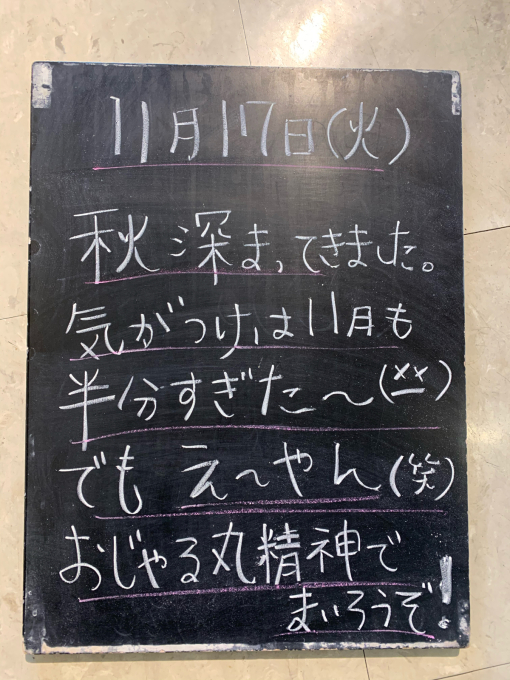 11月17日(火)
秋深まってきました。
気がつけば11月も
半分すぎた～(××)
でもえ～やん(笑)
おじゃる丸精神で
まいろうぞ!